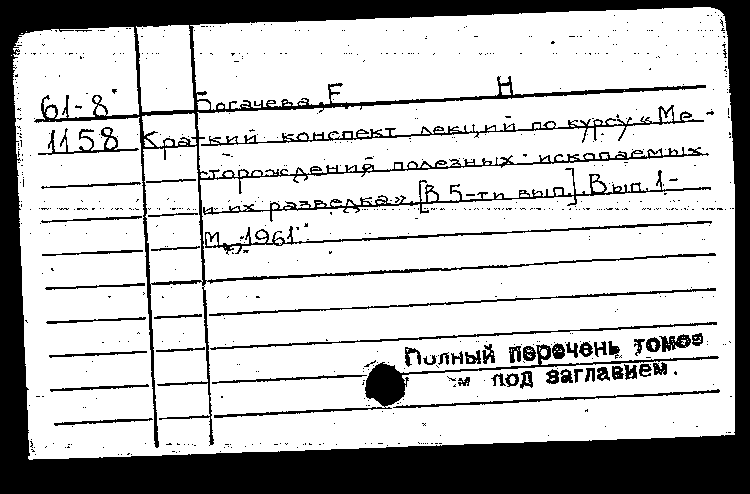 61-8 Богачева, Е. Н
1158 Краткий конспект лекций по курсу «Ме-
сторождений полезных ископаемых
и их разведка». [В 5-ти вып.]. Вып. 1-
М., 1961
Полный перечень томов
см под заглавием.